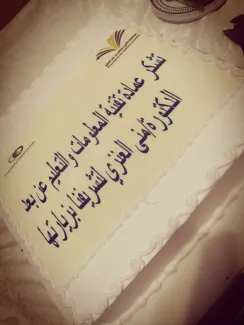 تشكر عمادة تقنية المعلومات و التعليم عن بعد
الدكتورة/منى العنزي لتشريفنا بزيارتها